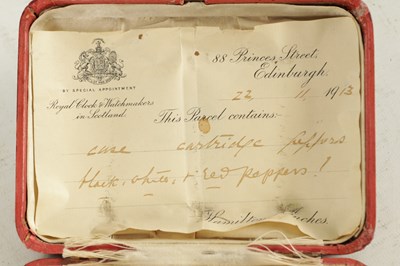 88 Princes Street,
Edinburgh.
BY SPECIAL APPOINTMENT
22 11 1913
Royal Clock & Watchmakers
in Scotland.
This Parcel contains:
case cartridge peppers
black, white, & red peppers!
Hamilton Inches.